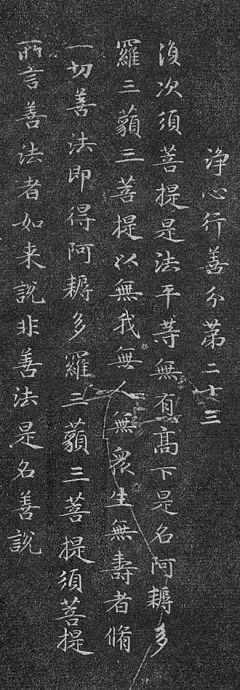 淨心行善分第二十三
復次須菩提是法平等無有高下是名阿耨多
羅三藐三菩提以無我無人無衆生無壽者脩
一切善法即得阿耨多羅三藐三菩提須菩提
所言善法者如来說非善法是名善說